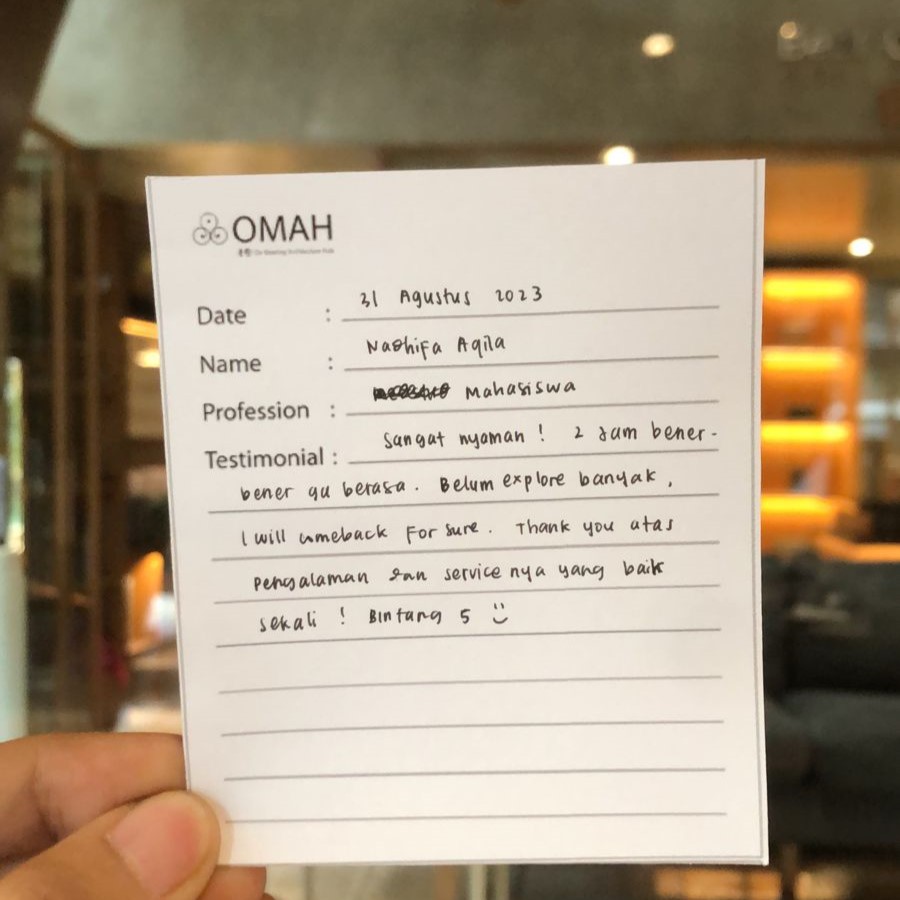 OMAH
Date : 31 Agustus 2023
Name : Nashifa Aqila
Profession : Mahasiswa
Testimonial : Sangat nyaman ! 2 Jam bener-
bener gu berasa . Belum explore banyak ,
I will comeback For sure . Thank you atas
Pengalaman dan service nya yang baik
sekali ! Bintang 5